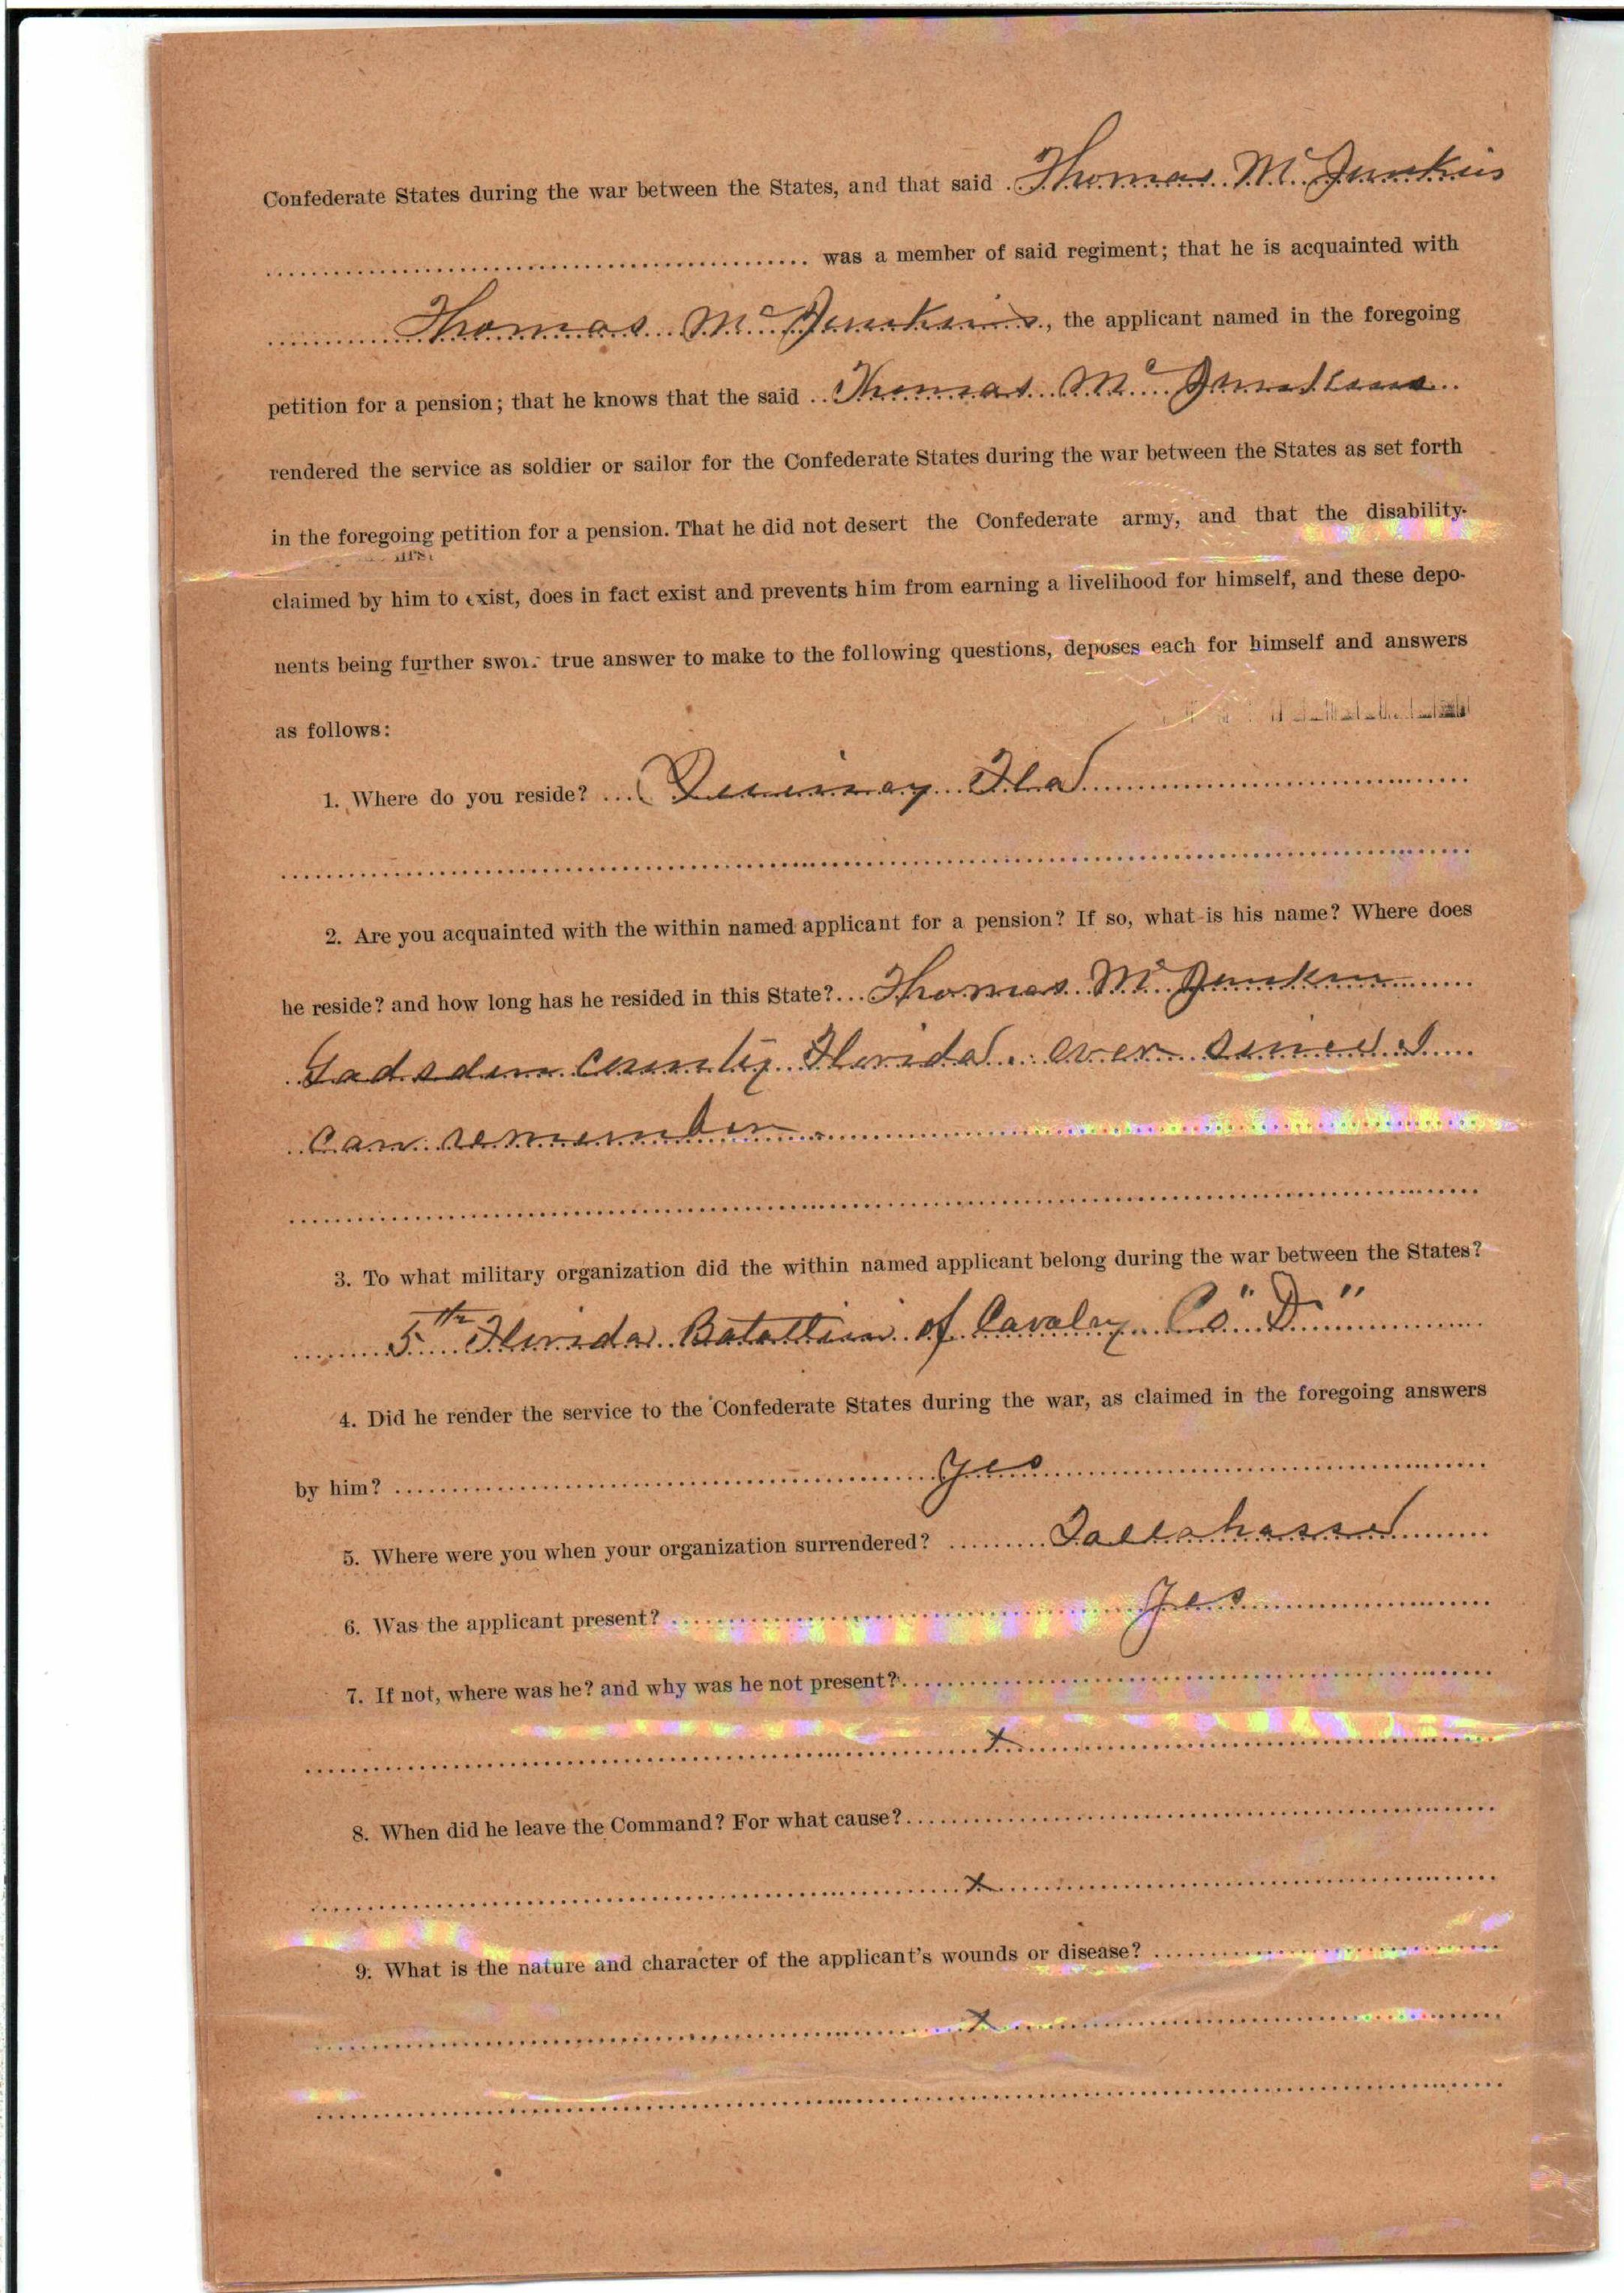 Confederate States during the war between the States, and that said . Thomas Mc Junkins
was a member of said regiment; that he is acquainted with
Thomas Mc Junkins, the applicant named in the foregoing
petition for a pension; that he knows that the said .. Thomas Mc Junkins ..
rendered the service as soldier or sailor for the Confederate States during the war between the States as set forth
in the foregoing petition for a pension. That he did not desert the Confederate army, and that the disability
claimed by him to exist, does in fact exist and prevents him from earning a livelihood for himself, and these depo-
nents being further swor. true answer to make to the following questions, deposes each for himself and answers
as follows:
1. Where do you reside? ... Quincy Fla
2. Are you acquainted with the within named applicant for a pension? If so, what is his name? Where does
he reside? and how long has he resided in this State? ... Thomas Mc Junkin
Gadsden County Florida. ever since I
can remember.
3. To what military organization did the within named applicant belong during the war between the States?
5th Florida Batallion of Cavalry Co "D"
4. Did he render the service to the Confederate States during the war, as claimed in the foregoing answers
by him? Yes
5. Where were you when your organization surrendered? Tallahassee
6. Was the applicant present? Yes
7. If not, where was he? and why was he not present?
x
8. When did he leave the Command? For what cause?
x
9. What is the nature and character of the applicant's wounds or disease?
x